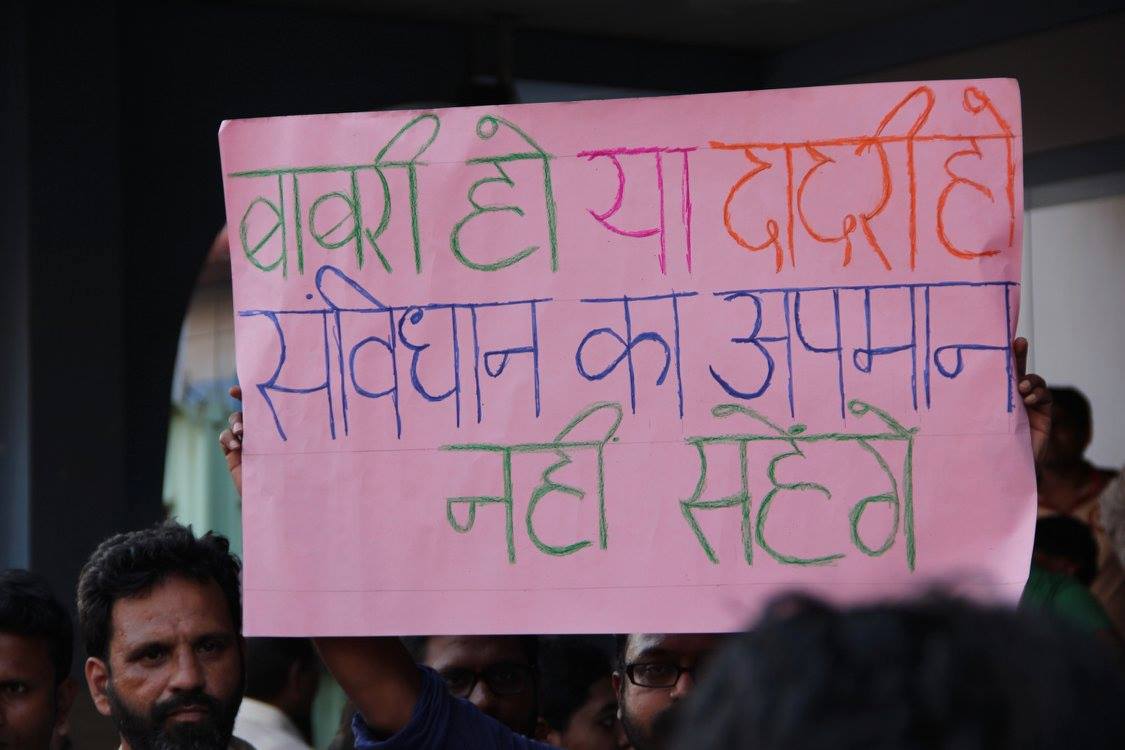 बाबरी हो या दादरी हो
संविधान का अपमान
नहीं सहेंगे